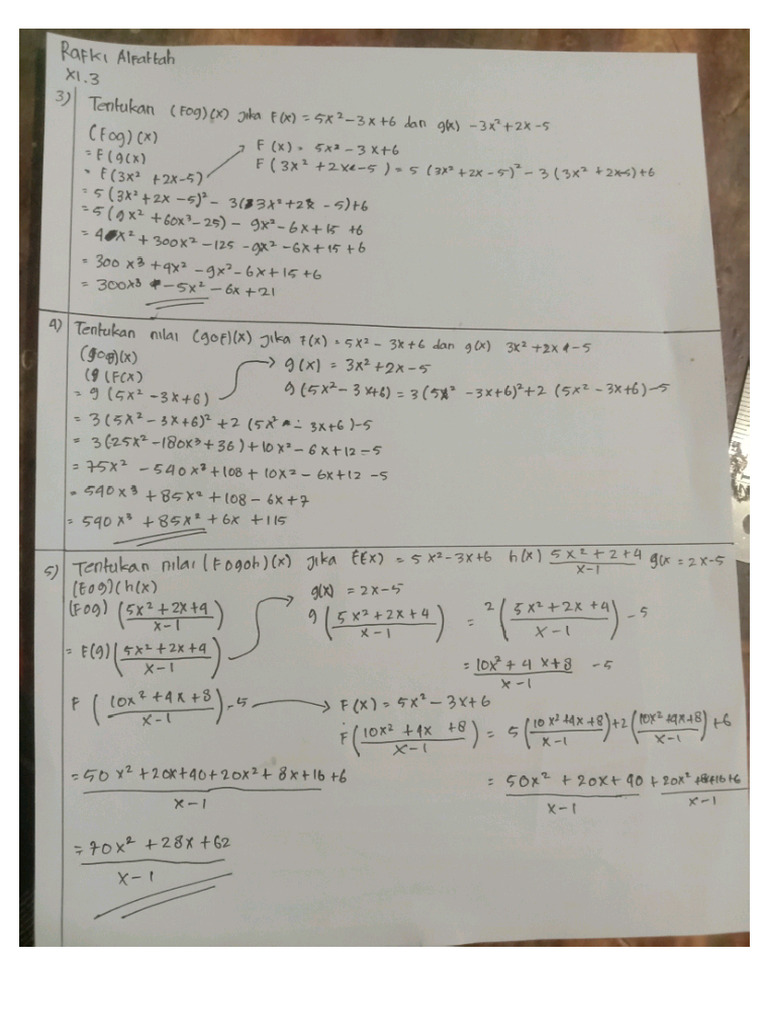 Rafki Alfattah
XI.3
3) Tentukan (Fog)(x) jika F(x) = 5x² - 3x + 6 dan g(x) - 3x² + 2x - 5
(Fog)(x)
= F(g(x)
F(x) = 5x² - 3x + 6
= F(3x² + 2x - 5)
F(3x² + 2x - 5) = 5(3x² + 2x - 5)² - 3(3x² + 2x - 5) + 6
= 5(3x² + 2x - 5)² - 3(3x² + 2x - 5) + 6
= 5(9x² + 60x³ - 25) - 9x² - 6x + 15 + 6
= 4x² + 300x² - 125 - 9x² - 6x + 15 + 6
= 300x³ + 4x² - 9x² - 6x + 15 + 6
= 300x³ - 5x² - 6x + 21
4) Tentukan nilai (goF)(x) jika F(x) = 5x² - 3x + 6 dan g(x) 3x² + 2x - 5
(gof)(x)
g(x) = 3x² + 2x - 5
(g(F(x)
= g(5x² - 3x + 6)
g(5x² - 3x + 6) = 3(5x² - 3x + 6)² + 2(5x² - 3x + 6) - 5
= 3(5x² - 3x + 6)² + 2(5x² - 3x + 6) - 5
= 3(25x² - 180x³ + 36) + 10x² - 6x + 12 - 5
= 75x² - 540x³ + 108 + 10x² - 6x + 12 - 5
= 540x³ + 85x² + 108 - 6x + 7
= 540x³ + 85x² + 6x + 115
5) Tentukan nilai (Fogoh)(x) jika F(x) = 5x² - 3x + 6 h(x) 5x² + 2 + 4 / x - 1 g(x = 2x - 5
(Fog)(h(x)
g(x) = 2x - 5
(Fog) (5x² + 2x + 4 / x - 1)
g (5x² + 2x + 4 / x - 1) = 2 (5x² + 2x + 4 / x - 1) - 5
= F(g) (5x² + 2x + 4 / x - 1)
= 10x² + 4x + 8 / x - 1 - 5
F (10x² + 4x + 8 / x - 1) - 5
F(x) = 5x² - 3x + 6
F (10x² + 4x + 8 / x - 1) = 5 (10x² + 4x + 8 / x - 1) + 2 (10x² + 4x + 8 / x - 1) + 6
= 50x² + 20x + 40 + 20x² + 8x + 16 + 6 / x - 1
= 50x² + 20x + 40 / x - 1 + 20x² + 8x + 16 + 6 / x - 1
= 70x² + 28x + 62 / x - 1